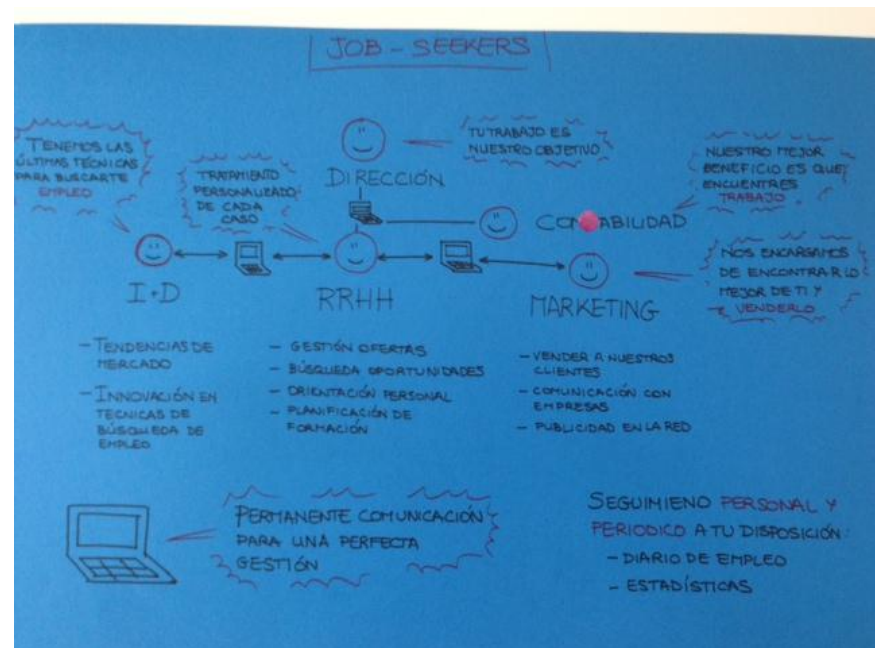 JOB - SEEKERS
TENEMOS LAS
ÚLTIMAS TÉCNICAS
PARA BUSCARTE
EMPLEO
TRATAMIENTO
PERSONALIZADO
DE CADA
CASO
DIRECCIÓN
TU TRABAJO ES
NUESTRO OBJETIVO
CONTABILIDAD
NUESTRO MEJOR
BENEFICIO ES QUE
ENCUENTRES
TRABAJO
I+D
RRHH
MARKETING
NOS ENCARGAMOS
DE ENCONTRAR LO
MEJOR DE TI Y
VENDERLO
- TENDENCIAS DE
MERCADO
- INNOVACIÓN EN
TECNICAS DE
BÚSQUEDA DE
EMPLEO
- GESTIÓN OFERTAS
- BÚSQUEDA OPORTUNIDADES
- ORIENTACIÓN PERSONAL
- PLANIFICACIÓN DE
FORMACIÓN
- VENDER A NUESTROS
CLIENTES
- COMUNICACIÓN CON
EMPRESAS
- PUBLICIDAD EN LA RED
PERMANENTE COMUNICACIÓN
PARA UNA PERFECTA
GESTIÓN
SEGUIMIENO PERSONAL Y
PERIODICO A TU DISPOSICIÓN:
- DIARIO DE EMPLEO
- ESTADÍSTICAS